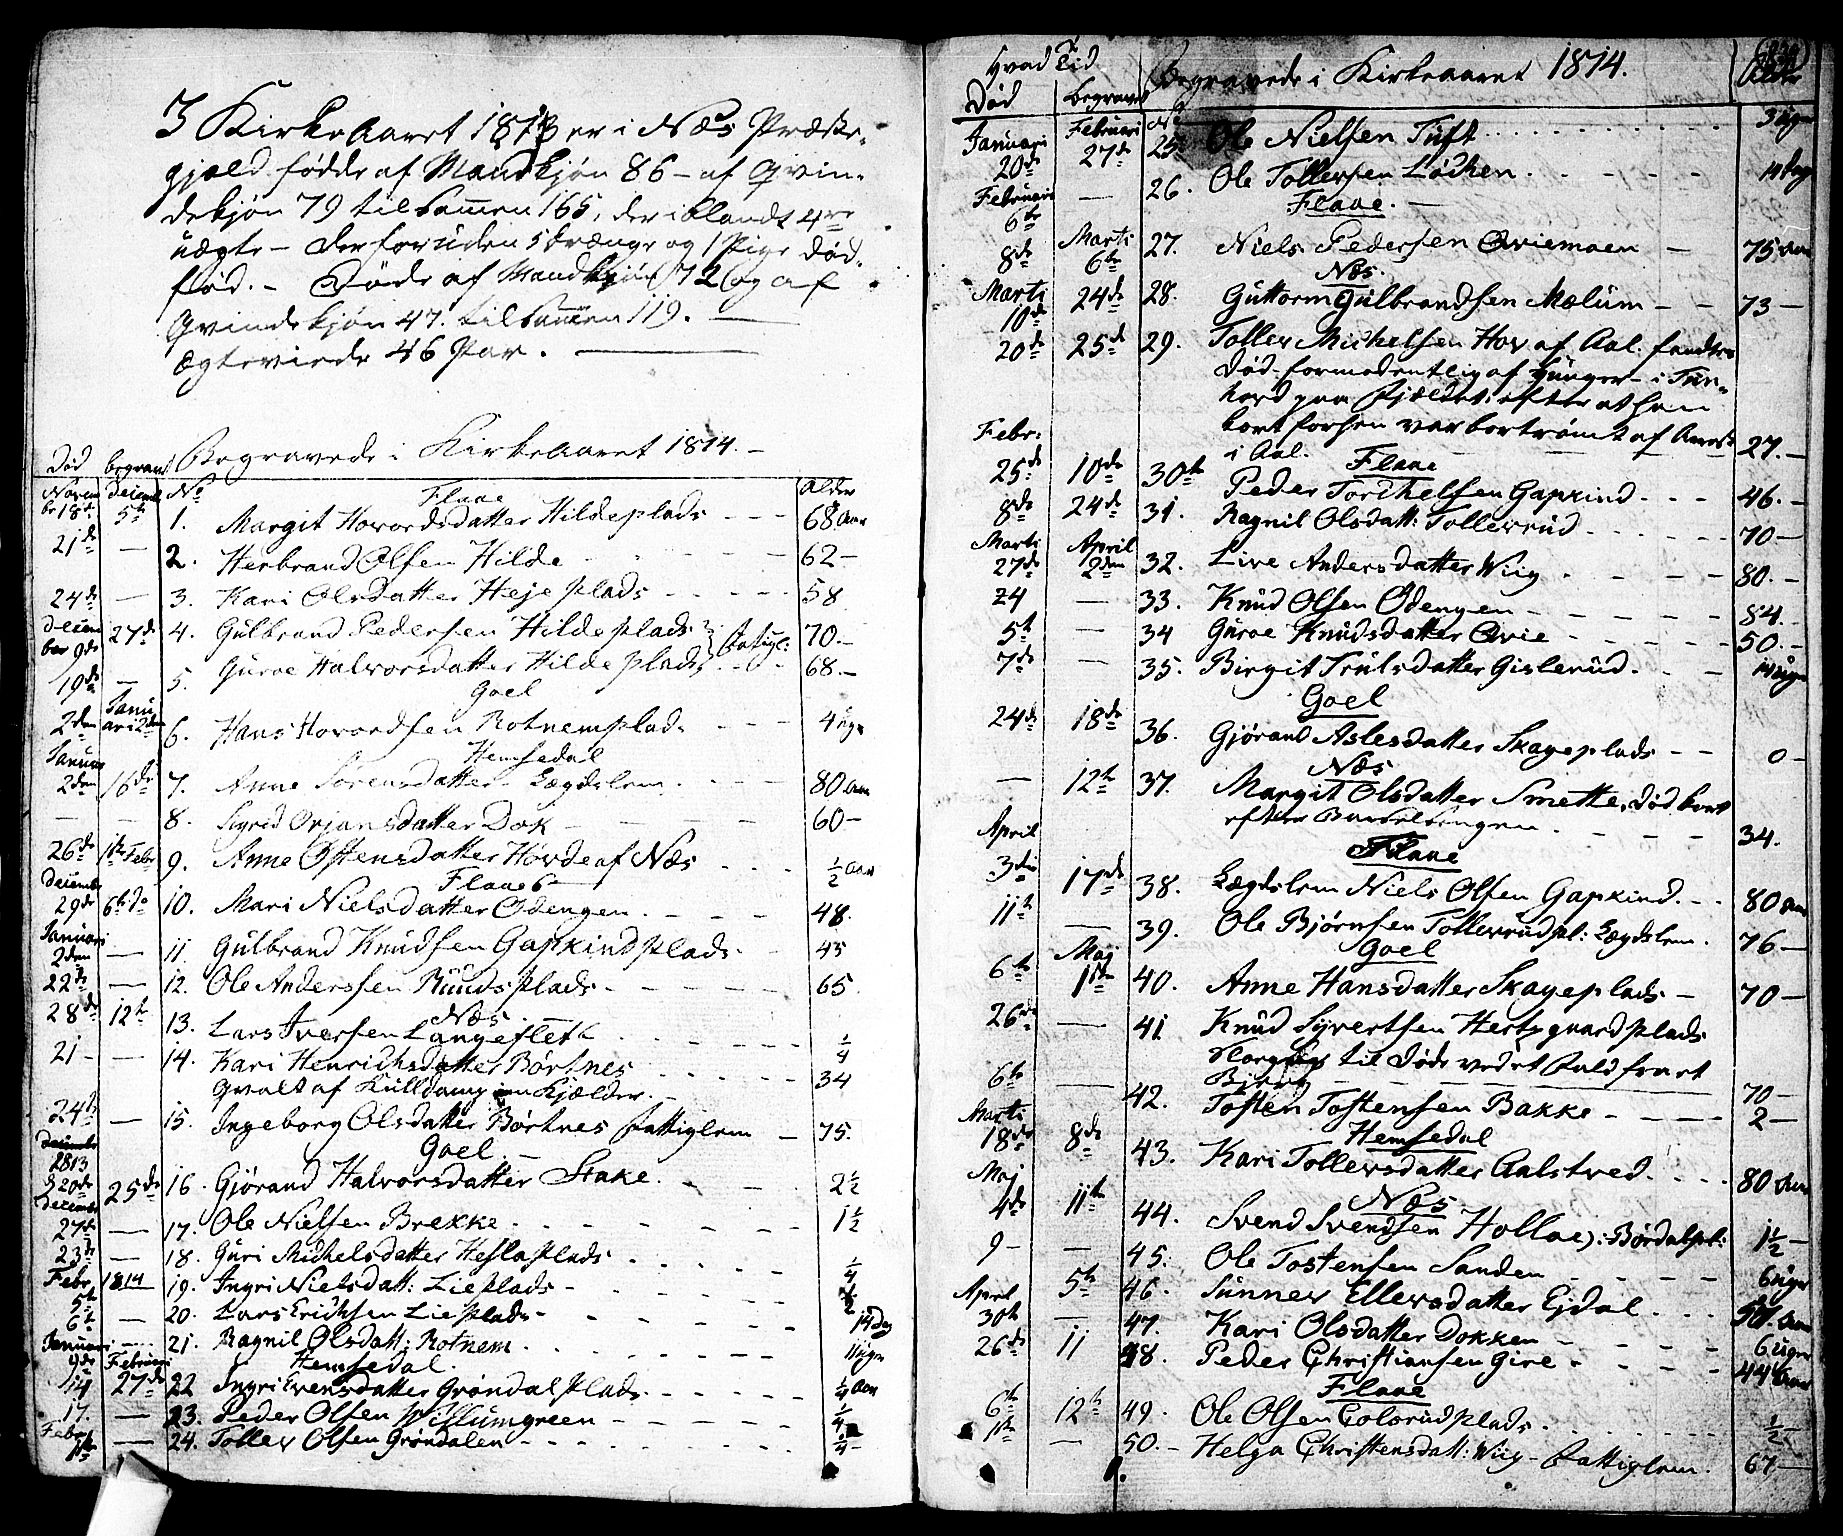 I Kirke Aaret 1813 er i Næs Præste-
gjæld fødde af Mandkjøn 86 - af Qvin-
dekjøn 79 tilsammen 165, der iblandt 4re
uægte - Der foruden 5 Drænge og 1 Pige død-
fød. - Døde af Mandkjøn 72 og af
Qvindekjøn 47. tilsammen 119. -
Ægteviede 46 Par. -
Begravede i Kirkeaaret 1814. -
Død begravt No Alder
Flaae
Novembr 18de Decemb 5te 1. Margit Hovordsdatter Hildeplads - - - 68 Aar
21de - 2. Herbrand Olsen Hilde - - - 62 -
24de - 3. Kari Olsdatter Hejeplads - - - 58
December 9de 27de 4. Gulbrand Pedersen Hildeplads 70 -
19de - 5. Guroe Halvorsdatter Hildeplads 68 -
Goel
2den Januari 2den 6. Hans Hovordsen Rotnemplads - - - 4 uger
Hemsedal
Januar 2den 16de 7. Anne Sørensdatter Lægdslem - - - 80 Aar
- - 8. Sigrid Orjansdatter Dok - - - 60 -
26de 1te Febr 9. Anne Østensdatter Hovde af Næs - - - 1/2 Aar
Flaae
Decembr 29de 6te do 10. Mari Nielsdatter Odengen - - - 48.
Januari 2den - 11. Gulbrand Knudsen Gapkindplads 45
22de - 12. Ole Anderssen Ruudsplads - - - 65.
Næs
28de 12te 13. Lars Iversen Langesleth - - - 1/4
21 - - 14. Kari Henrichsdatter Børtnes - - - 34
qvalt af Kulldamp i en Kjælder. -
24de - 15. Ingeborg Olsdatter Børtnes Fattiglem - 75.
Goel. -
20de 25de 16. Gjørand Halvorsdatter Stake. - - 2 1/2
December 27de - 17. Ole Nielsen Brekke - - - 1 1/2
23de - 18. Guri Michelsdatter Heslaplads - - - 1/4
Febr. 5te 1814 19. Ingri Nielsdatt: Lieplads - - - 1/2
6te - 20. Lars Erichsen Lieplads - - - 14 Dag
Januari 9de - 21. Ragnil Olsdatt: Rotnem - - - 11 uger
Hemsedal.
14 Februari 27de 22 Ingri Evensdatter Grøndalplads - - - 1/4 Aar
17. - 23. Peder Olsen Willumgreen - - - 1/4
Febr 1te - 24. Toller Olsen Grøndalen - - - 1/4 -
Hvad Tid Begravede i Kirkeaaret 1814.
Død begravet No Alder
Januari 20de Februari 27de 25. Ole Nielsen Tuft - - - 3 uger
Februari 6te - 26. Ole Tollersen Løchen - - - 14 Dag
Flaae. -
8de Marti 6te 27. Niels Pedersen Qviemoen - 75 Aar
Næs.
Marti 10de 24de 28. Guttorm Gulbrandsen Mælum - - 73 -
20de 25de 29. Toller Michelsen Hov af Aal. fandtes
død formodentlig af Hunger - i Tun-
hovd paa Fjældet efter at han
var bortrømt af Arrest
i Aal. - - - 27. -
Flaae
Febr: 25de 10de 30te Peder Torchelsen Gapkind - - - 46. -
8de 24de 31. Ragnil Olsdatt: Tollevrud - - - 70 -
Marti 27de April 2den 32. Live Andersdatter Wiig - - - 80. -
24 - 33. Knud Olsen Odengen - - - 84. -
5te - 34 Guroe Knudsdatter Qvie - - - 50. -
7de - 35. Birgit Trulsdatter Gislerud - - - 14 uger
Goel
24de 18de 36. Gjørand Aslesdatter Skageplads - - 0 -
Næs
- 12te 37. Margit Olsdatter Smette, død
efter Barselsengen. - - - 34.
Flaae
April 3die 17de 38. Lægdslem Niels Olsen Gapkind. - - 80 Aar
11te - 39. Ole Bjørnsen Tollevrudpl: Lægdslem. 76 -
Goel
6te Maj 1te 40. Anne Hansdatter Skageplads - 70 -
26de - 41 Knud Syvertsen Hertzgaardplads
til Døde ved et Fald fra et
Bjerg - - - 70 -
6te - 42. Tosten Tostensen Bakke - - - 2 -
Hemsedal
Marti 18de 8de 43. Kari Tollevsdatter Aalstved - - - 80 Aar
Næs
Maj 4de 11te 44. Svend Svendsen Hollae): Børdalpl: 1 1/2 -
9 - - 45. Ole Tostensen Sanden - - - 6 uger
April 5te 46. Sunnev Ellersdatter Ejdal - - Aar
30te - 47. Kari Olsdatter Dokken - - - 6 uger
26de 11 48. Peder Christiansen Gire - - - 44 Aar
Flaae
6te 12te 49. Ole Olsen Golorudplads - - - 1/2
1te - 50. - Helga Christensdatt: Wiig - Fattiglem. 67 -